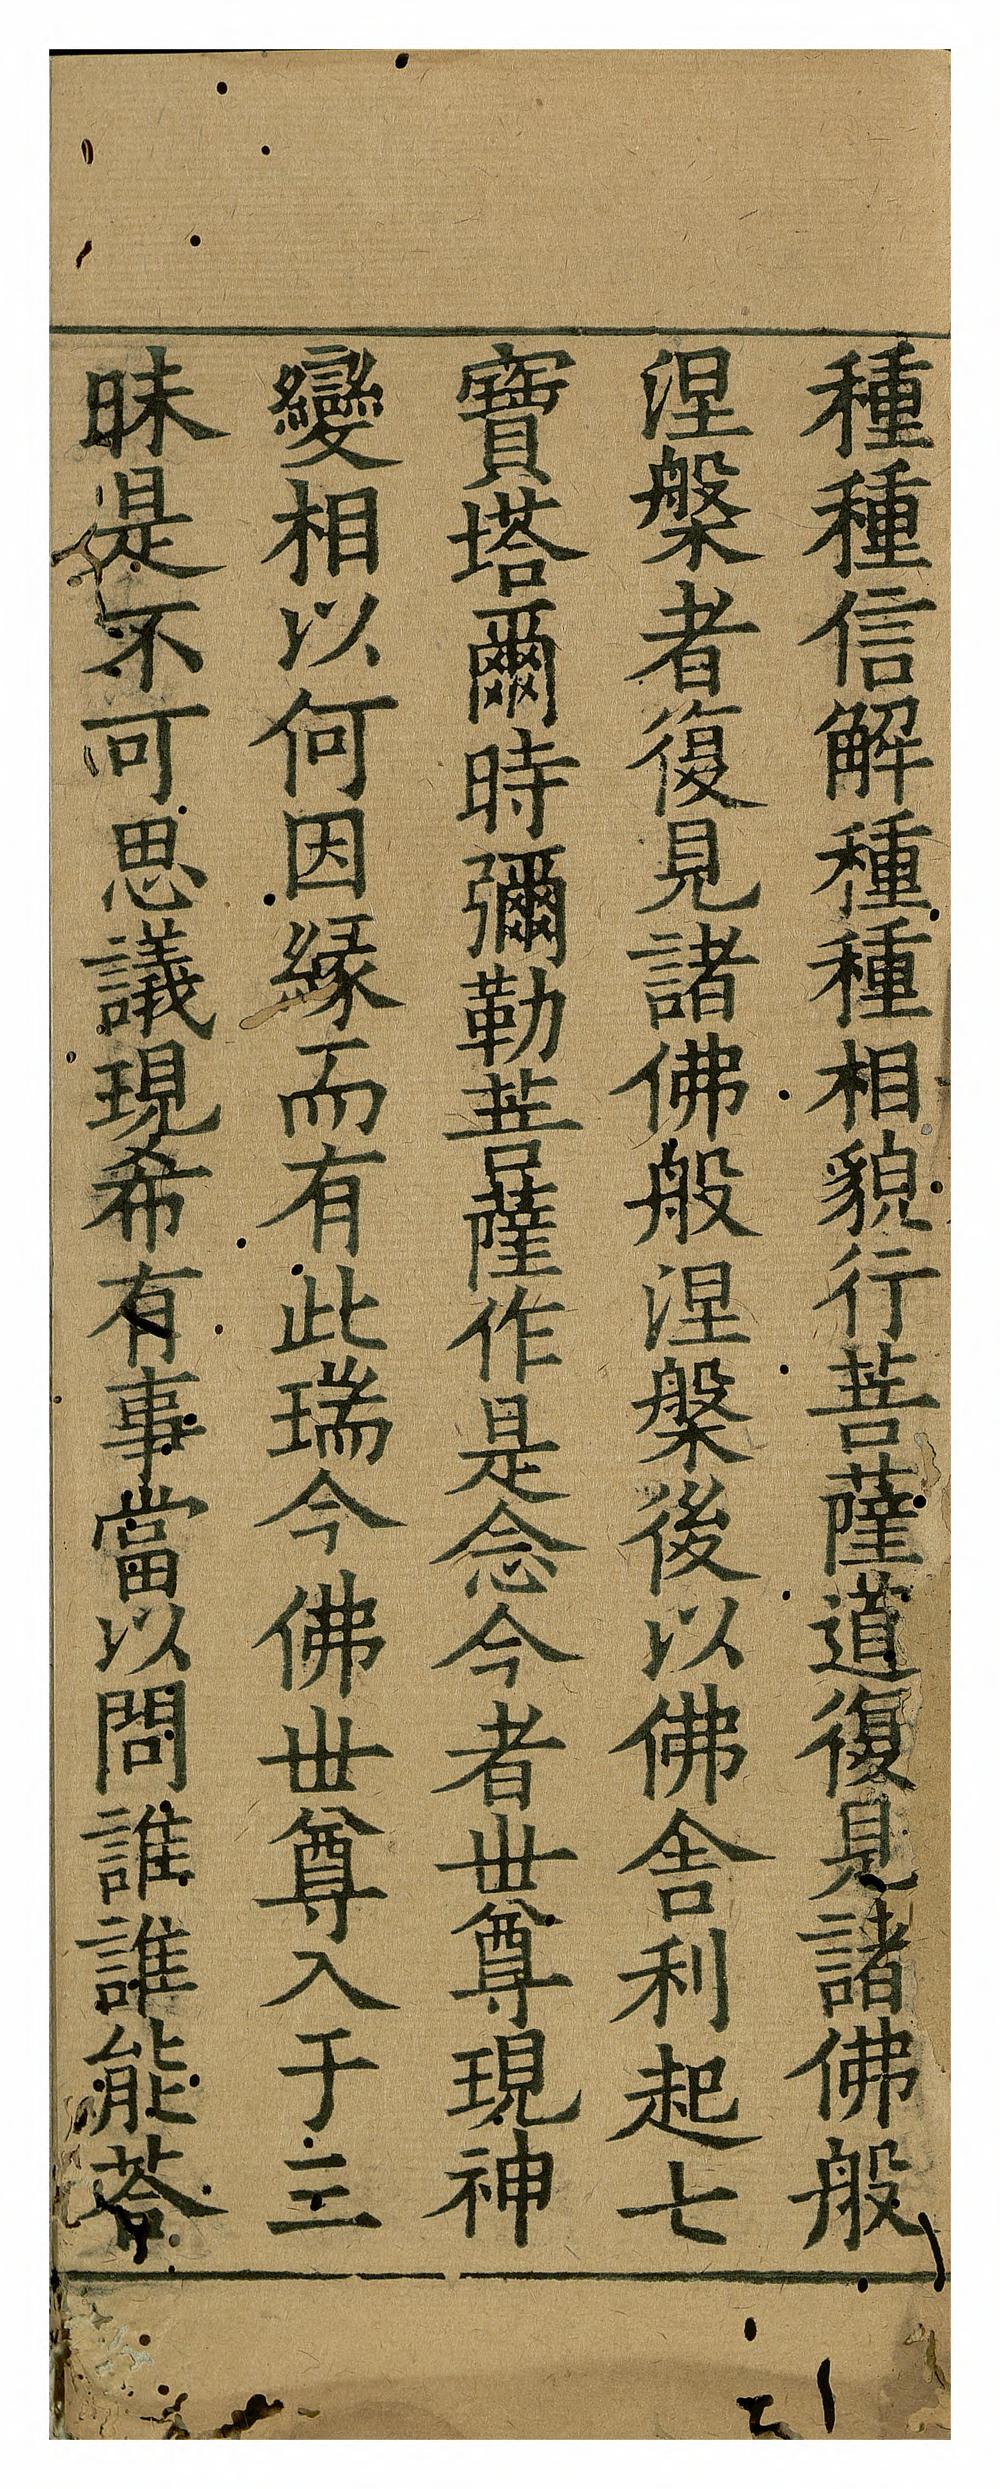 種種信解種種相貌行菩薩道復見諸佛般
涅槃者復見諸佛般涅槃後以佛舍利起七
寶塔爾時彌勒菩薩作是念今者世尊現神
變相以何因緣而有此瑞今佛世尊入于三
昧是不可思議現希有事當以問誰誰能荅